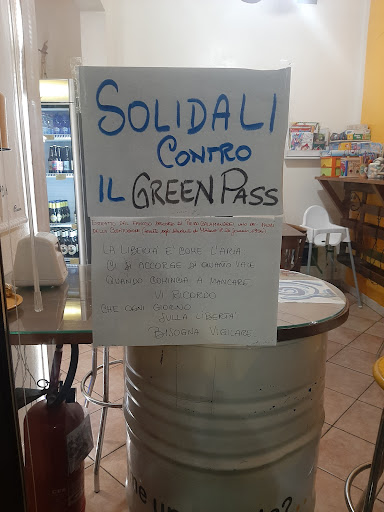 SOLIDALI
CONTRO
IL GREEN PASS
DELLA COSTITUZIONE
LA LIBERTÀ È COME L'ARIA
CI SI ACCORGE DI QUANTO VALE
QUANDO COMINCIA A MANCARE
VI RICORDO
CHE OGNI GIORNO
SULLA LIBERTÀ
BISOGNA VIGILARE